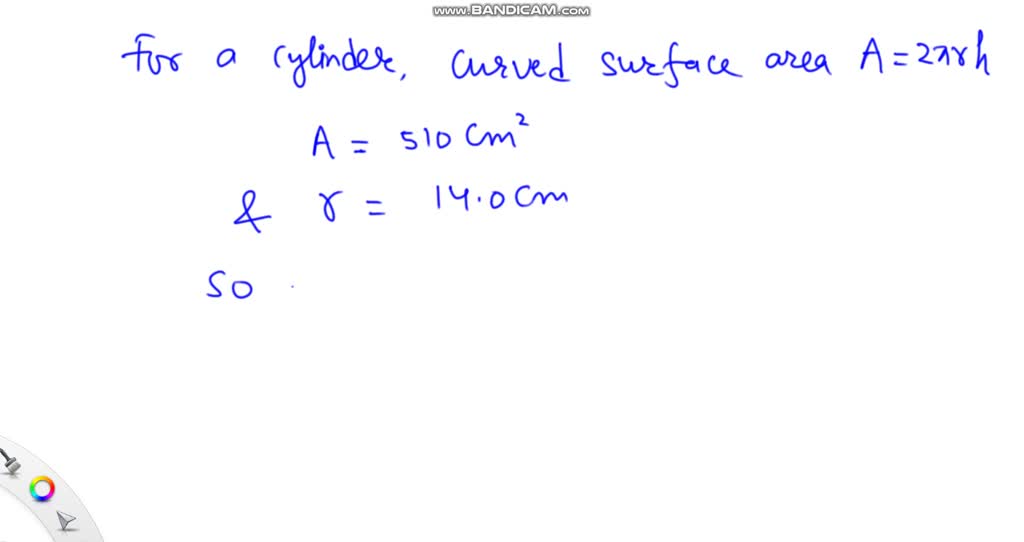 www.BANDICAM.com
For a cylinder, curved surface area A = 2πrh
A = 510 cm²
& r = 14.0 cm
So